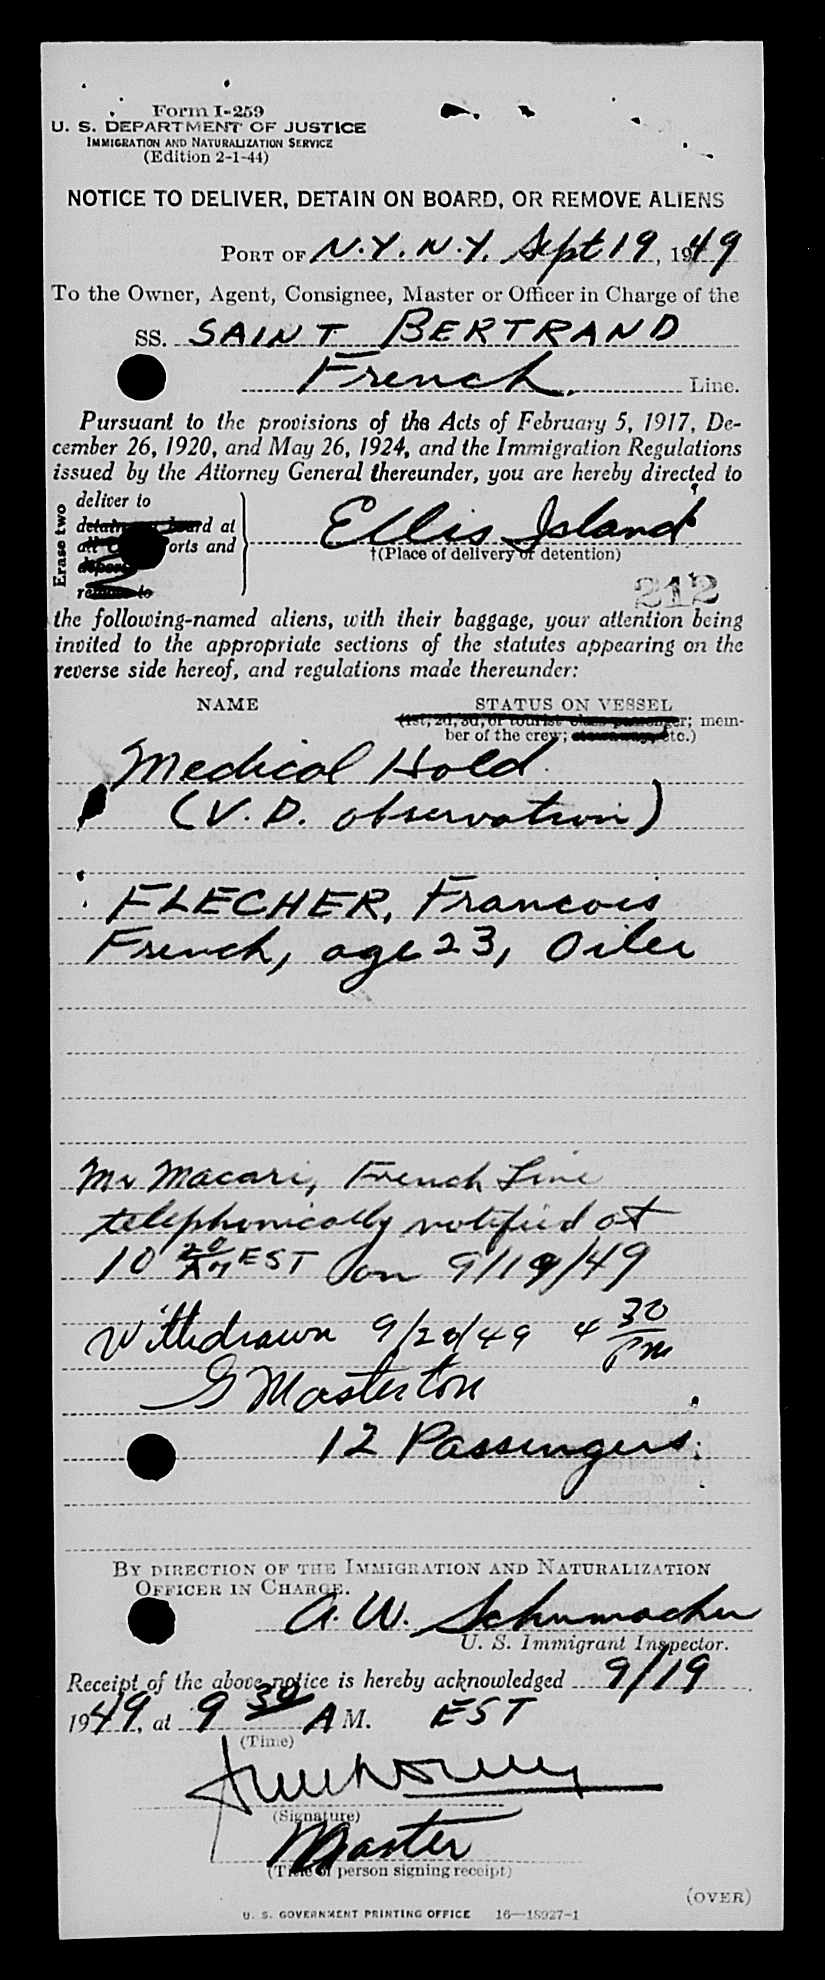 Form I-259
U. S. DEPARTMENT OF JUSTICE
IMMIGRATION AND NATURALIZATION SERVICE
(Edition 2-1-44)
NOTICE TO DELIVER, DETAIN ON BOARD, OR REMOVE ALIENS
PORT OF N.Y. N.Y. Sept 19, 1949
To the Owner, Agent, Consignee, Master or Officer in Charge of the
SS. SAINT BERTRAND
French Line.
Pursuant to the provisions of the Acts of February 5, 1917, De-
cember 26, 1920, and May 26, 1924, and the Immigration Regulations
issued by the Attorney General thereunder, you are hereby directed to
Erase two
deliver to
detain on board at
all ports and
remove to
Ellis Island
†(Place of delivery or detention)
212
the following-named aliens, with their baggage, your attention being
invited to the appropriate sections of the statutes appearing on the
reverse side hereof, and regulations made thereunder:
NAME STATUS ON VESSEL
(1st, 2d, 3d, or tourist class passenger; mem-
ber of the crew; stowaway, etc.)
Medical Hold
(V.D. observation)
FLECHER, Francois
French, age 23, Oiler
Mr Macari, French Line
telephonically notified at
10 20 AM EST on 9/19/49
Withdrawn 9/20/49 4 30 PM
G Masterton
12 Passengers
BY DIRECTION OF THE IMMIGRATION AND NATURALIZATION
OFFICER IN CHARGE.
A. W. Schumacher
U. S. Immigrant Inspector.
Receipt of the above notice is hereby acknowledged 9/19
1949, at 9 30 A M. EST
(Time)
(Signature)
Master
(Title of person signing receipt)
(OVER)
U. S. GOVERNMENT PRINTING OFFICE 16—18927-1